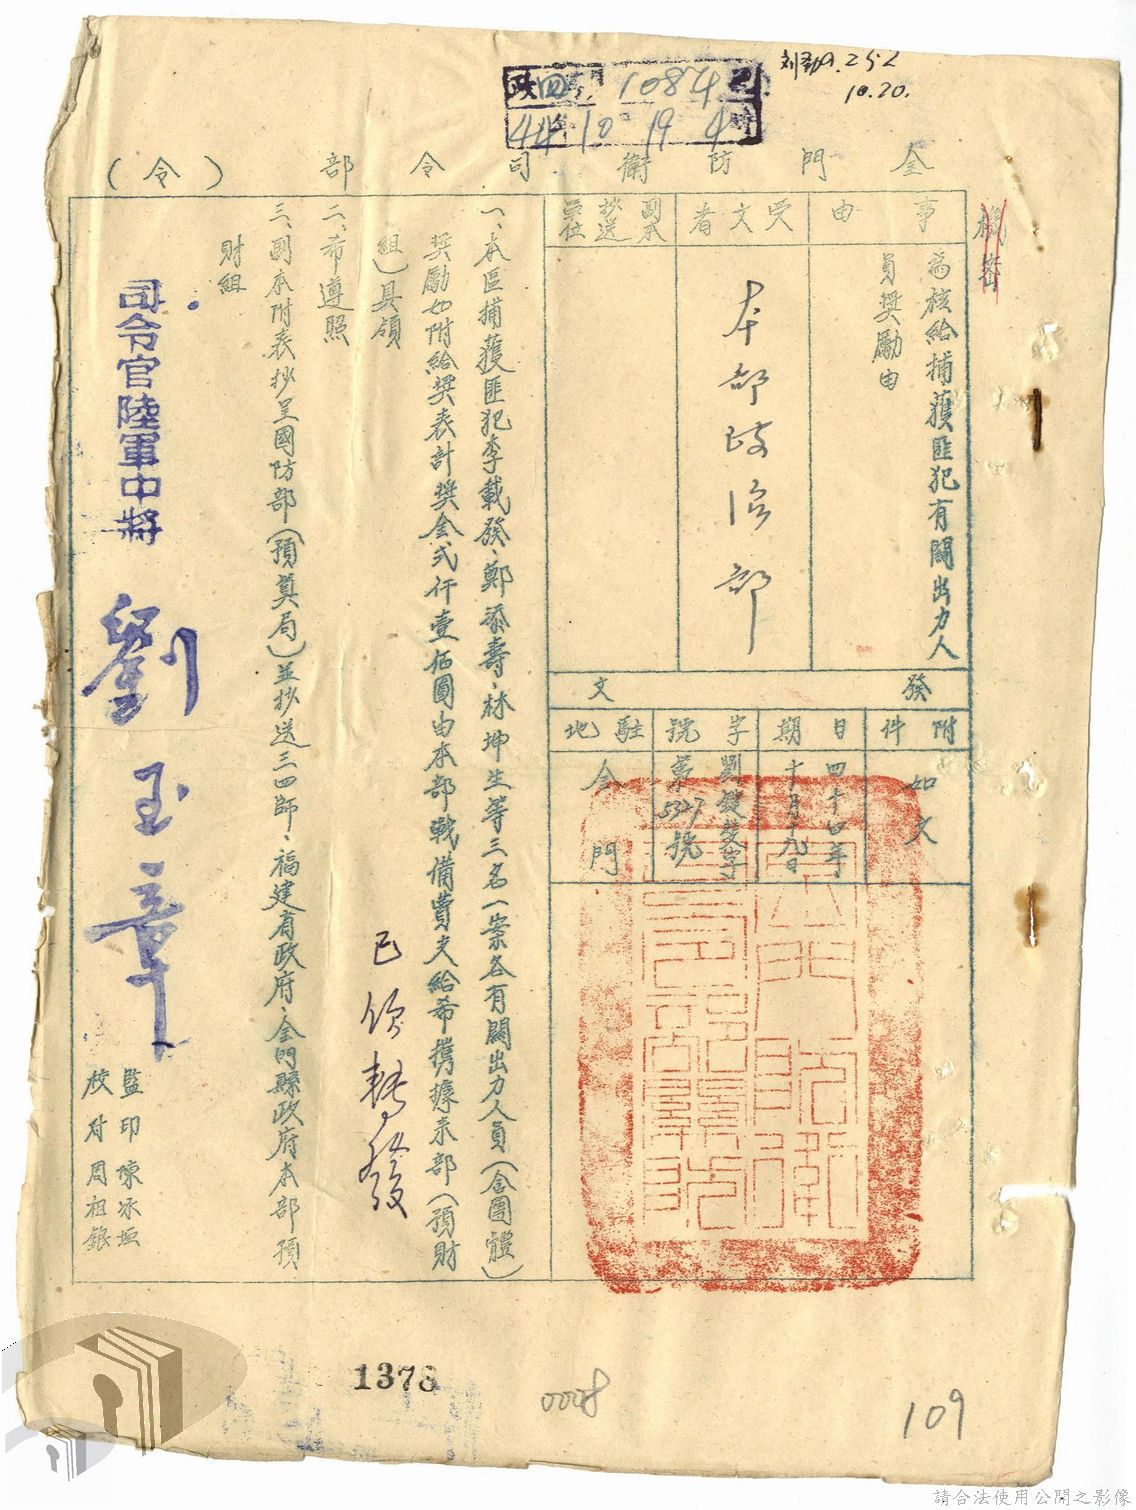 刘 252
10.20.
政四 1087
44 10 19 4
金門防衛司令部（令）
機密
事由
為核給捕獲匪犯有關出力人
員獎勵由
受文者
本部政治部
副本抄送單位
發文
附件
如文
日期
四十四年
十月十九日
字號
劉健楚字
第5327號
駐地
金門
一、本區捕獲匪犯李載發、鄭添壽、林坤生等三名一案各有關出力人員（含團體）
獎勵如附給獎表計獎金弍仟壹佰圓由本部戰備費支給希携據來部（預財
組）具領
二、希遵照
三、副本附表抄呈國防部（預算局）並抄送三四師、福建省政府、金門縣政府本部預
財組
已領轉發
司令官陸軍中將 劉玉章
監印陳冰垣
校对周祖銀
1378
0008
109
請合法使用公開之影像